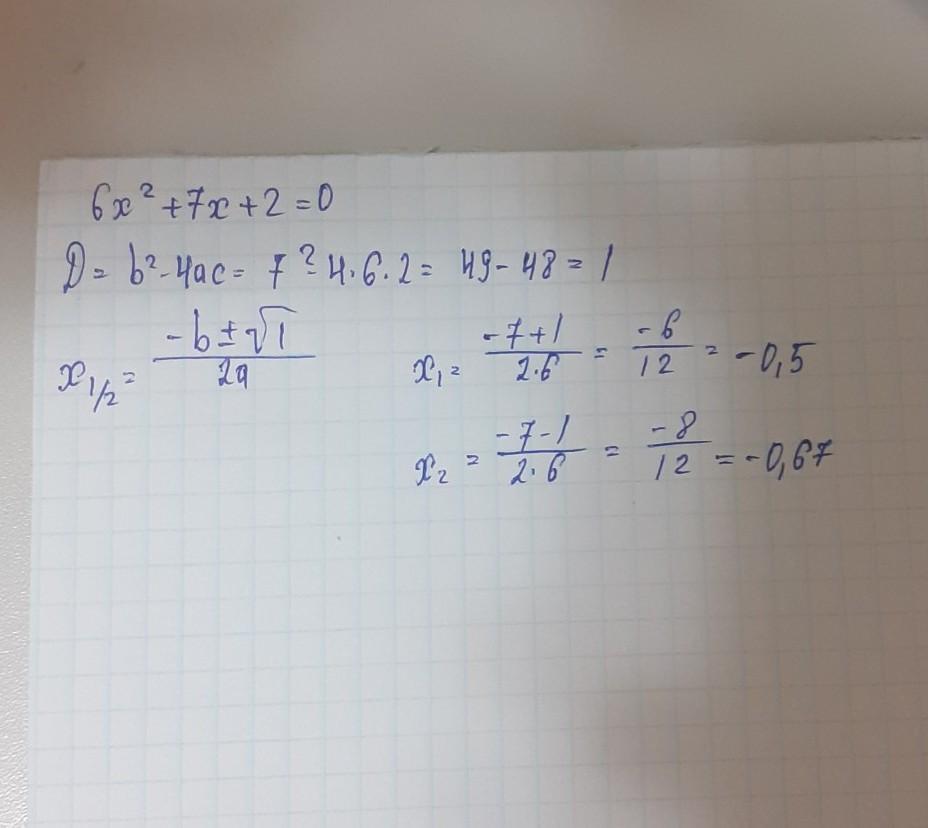 6x² + 7x + 2 = 0
D = b² - 4ac = 7² - 4·6·2 = 49 - 48 = 1
x₁/₂ = (-b ± √1)/2a    x₁ = (-7+1)/(2·6) = -6/12 = -0,5
x₂ = (-7-1)/(2·6) = -8/12 = -0,67